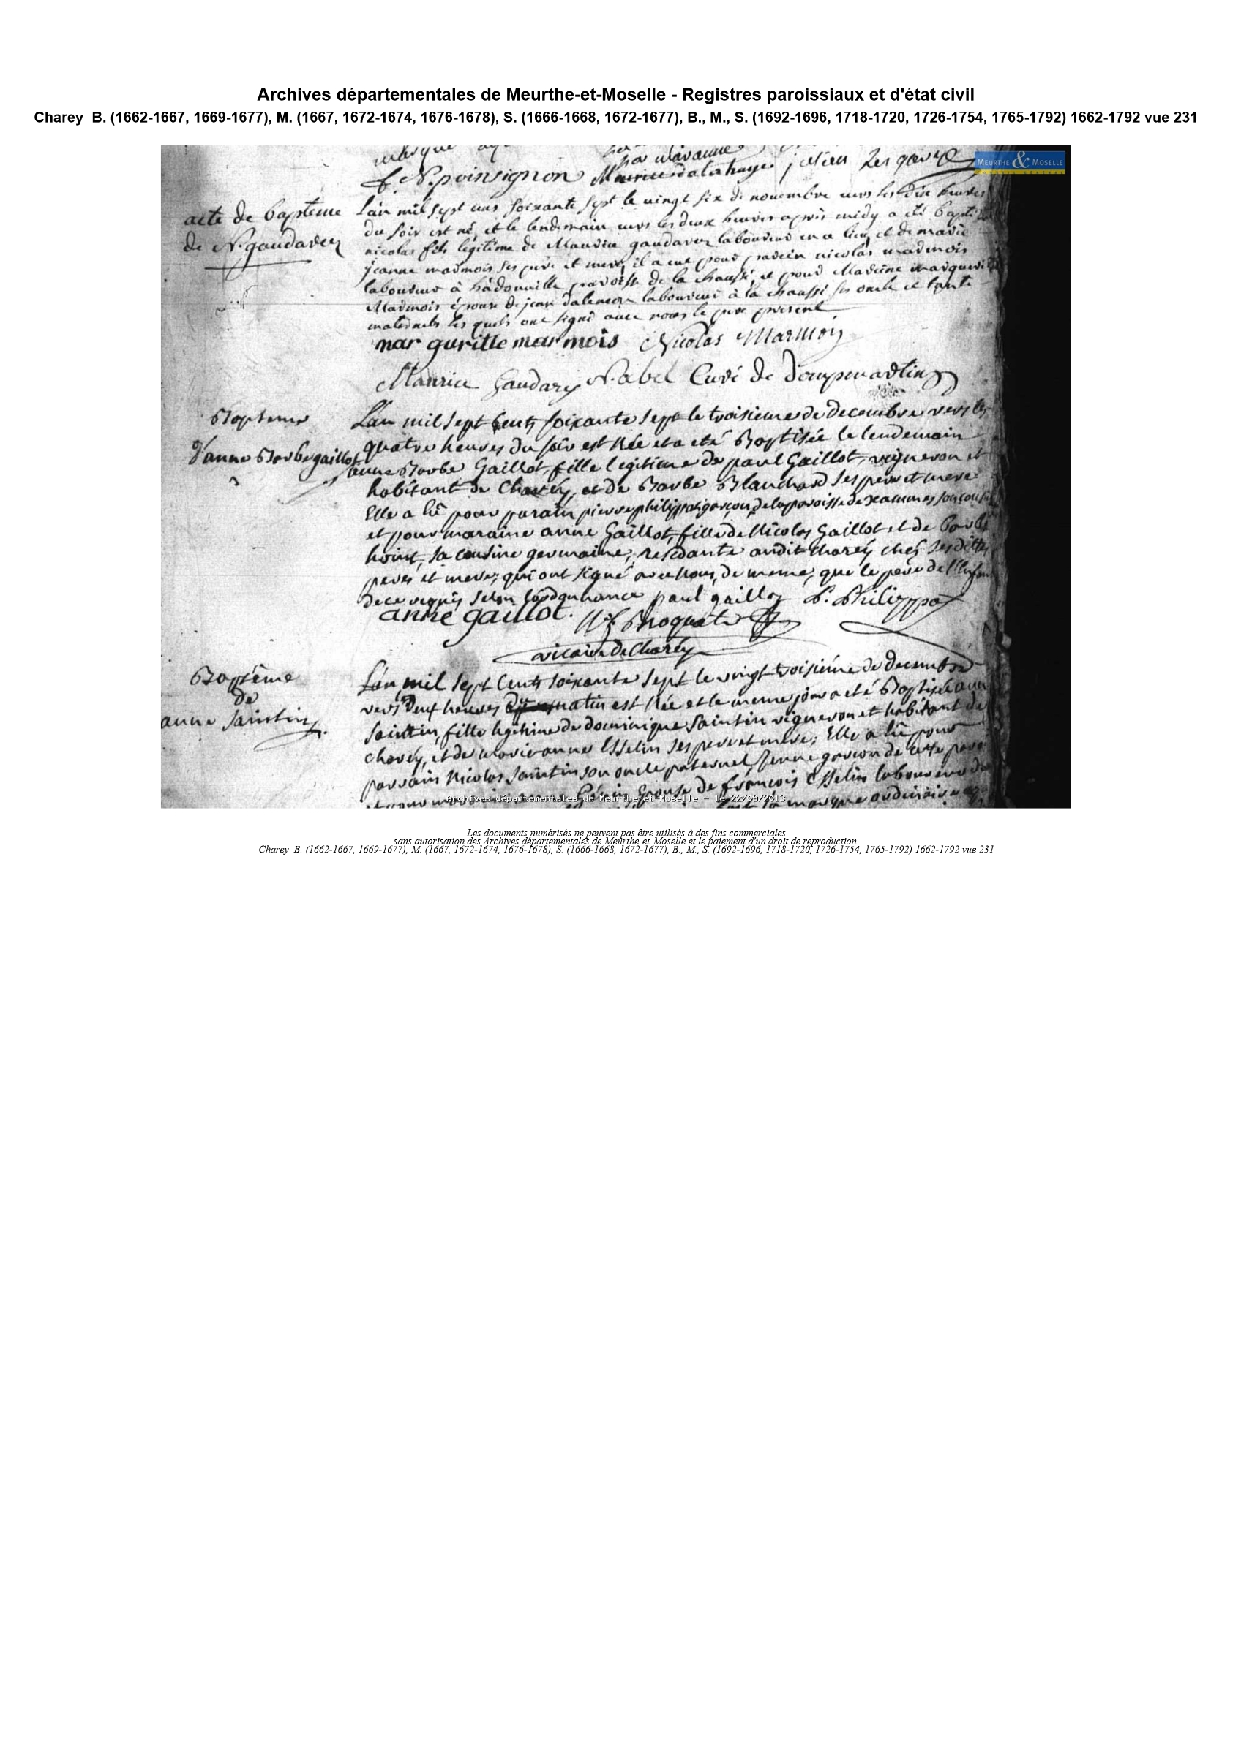 Archives départementales de Meurthe-et-Moselle - Registres paroissiaux et d'état civil
Charey B. (1662-1667, 1669-1677), M. (1667, 1672-1674, 1676-1678), S. (1666-1668, 1672-1677), B., M., S. (1692-1696, 1718-1720, 1726-1754, 1765-1792) 1662-1792 vue 231
MEURTHE & MOSELLE
N. poinsignon
acte de bapteme
de N. gaudarez
L'an mil sept cens soixante sept le vingt six de novembre vers les dix heures
du soir est né, et le lendemain vers les deux heures apres midy a été
nicolas fils légitime de Maurice gaudarez laboureur en a lieu et de marie
jeanne marmois ses pere et mere, il a eue pour parein nicolas marmois
laboureur à hadonville paroisse de la chaussé, et pour Mareine
Marmois épouse de jean laboureur à la chaussé ses oncle et tante
maternels les quels ont signé avec nous le pere present
mar gueritte mar mois Nicolas Marmois
Maurice Gaudarez N. abel Curé de Dompmartin
Bapteme
d'anne Barbe gaillot
L'an mil sept Cents soixante sept le troisieme de decembre vers les
quatre heures du soir est Née et a eté Baptisée le lendemain
anne Barbe Gaillot, fille legitime de paul Gaillot, vigneron et
habitant de Charey, et de Barbe Blanchard ses pere et mere
Elle a eû pour parain pierre philippe garçon de la paroisse de xammes son cousin
et pour maraine anne Gaillot, fille de Nicolas Gaillot et de Barbe
sa cousine germaine, residante audit Charey chez ses dits
peres et mere, qui ont signé avec nous, de meme, que le pere de l'enfant
de ce requis selon l'ordonnance paul gaillot P. Philippe
anne gaillot. Broquet
vicaire de Charey
Baptême
de
anne Saintin
L'an mil sept Cents soixante sept le vingt troisième de decembre
vers deux heures du matin est Née et le meme jour a eté Baptisée anne
Saintin, fille legitime de dominique Saintin vigneron et habitant de
charey, et de marie anne Esselin ses pere et mere; Elle a eû pour
parrain Nicolas Saintin son oncle paternel, jeune garçon de cette paroisse
épouse de françois Esselin laboureur
Archives départementales de Meurthe et Moselle - le 22/08/2013
Les documents numérisés ne peuvent pas être utilisés à des fins commerciales
sans autorisation des Archives départementales de Meurthe et Moselle et le paiement d'un droit de reproduction
Charey B. (1662-1667, 1669-1677), M. (1667, 1672-1674, 1676-1678), S. (1666-1668, 1672-1677), B., M., S. (1692-1696, 1718-1720, 1726-1754, 1765-1792) 1662-1792 vue 231